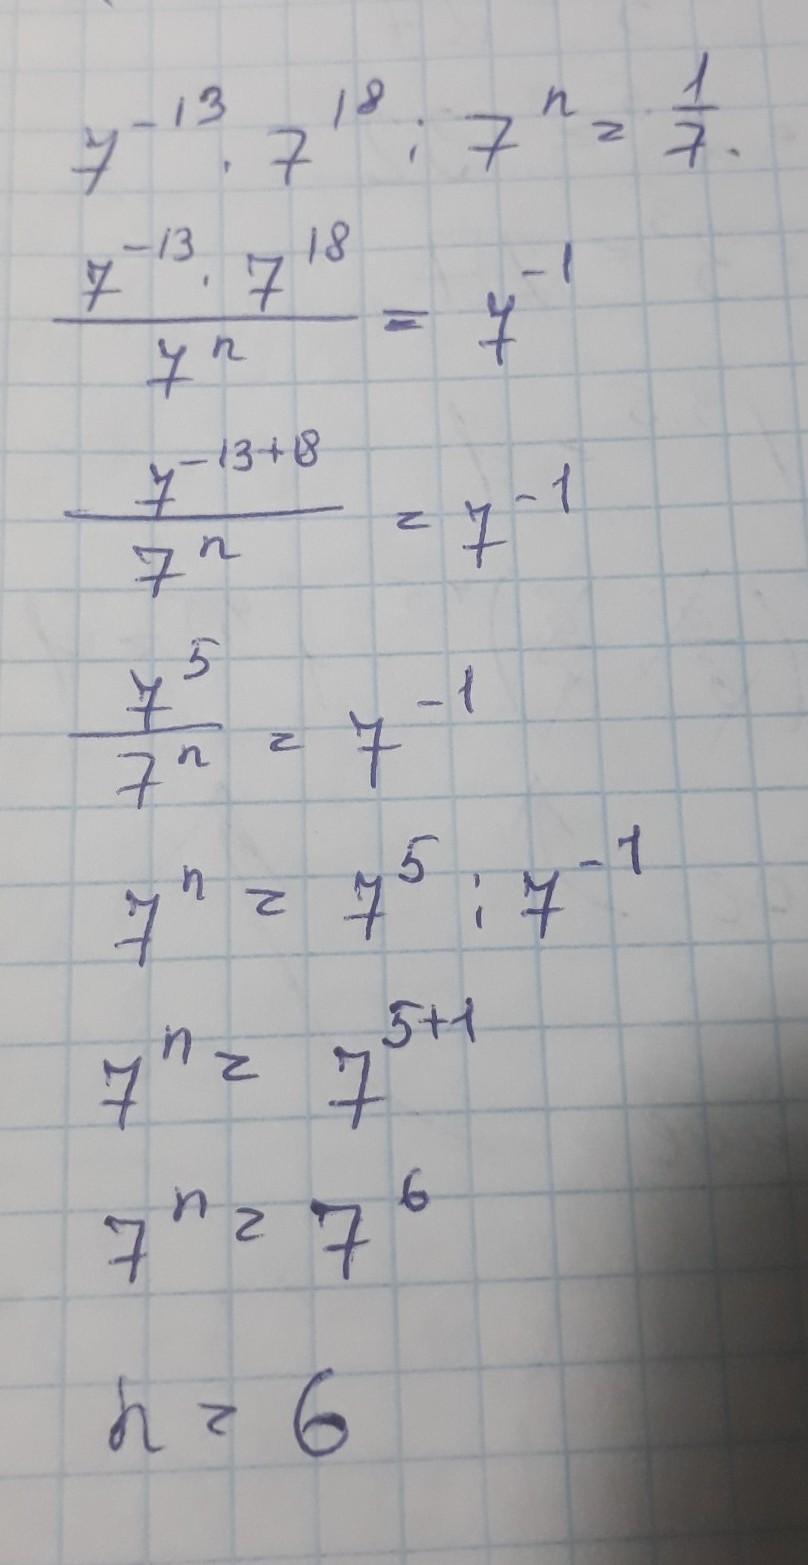 7^{-13} · 7^{18} : 7^{n} = \frac{1}{7}.
\frac{7^{-13} · 7^{18}}{7^{n}} = 7^{-1}
\frac{7^{-13+18}}{7^{n}} = 7^{-1}
\frac{7^{5}}{7^{n}} = 7^{-1}
7^{n} = 7^{5} : 7^{-1}
7^{n} = 7^{5+1}
7^{n} = 7^{6}
n = 6